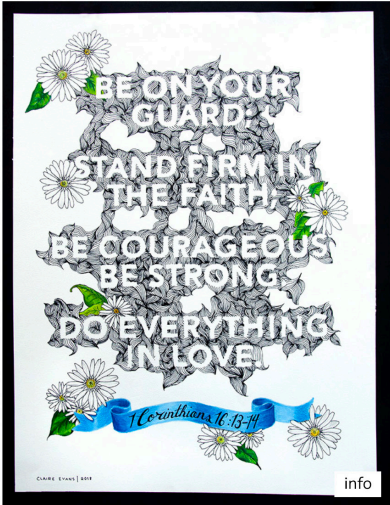 BE ON YOUR
GUARD;
STAND FIRM IN
THE FAITH;
BE COURAGEOUS
BE STRONG
DO EVERYTHING
IN LOVE.
1 Corinthians 16:13-14
CLAIRE EVANS | 2018
info